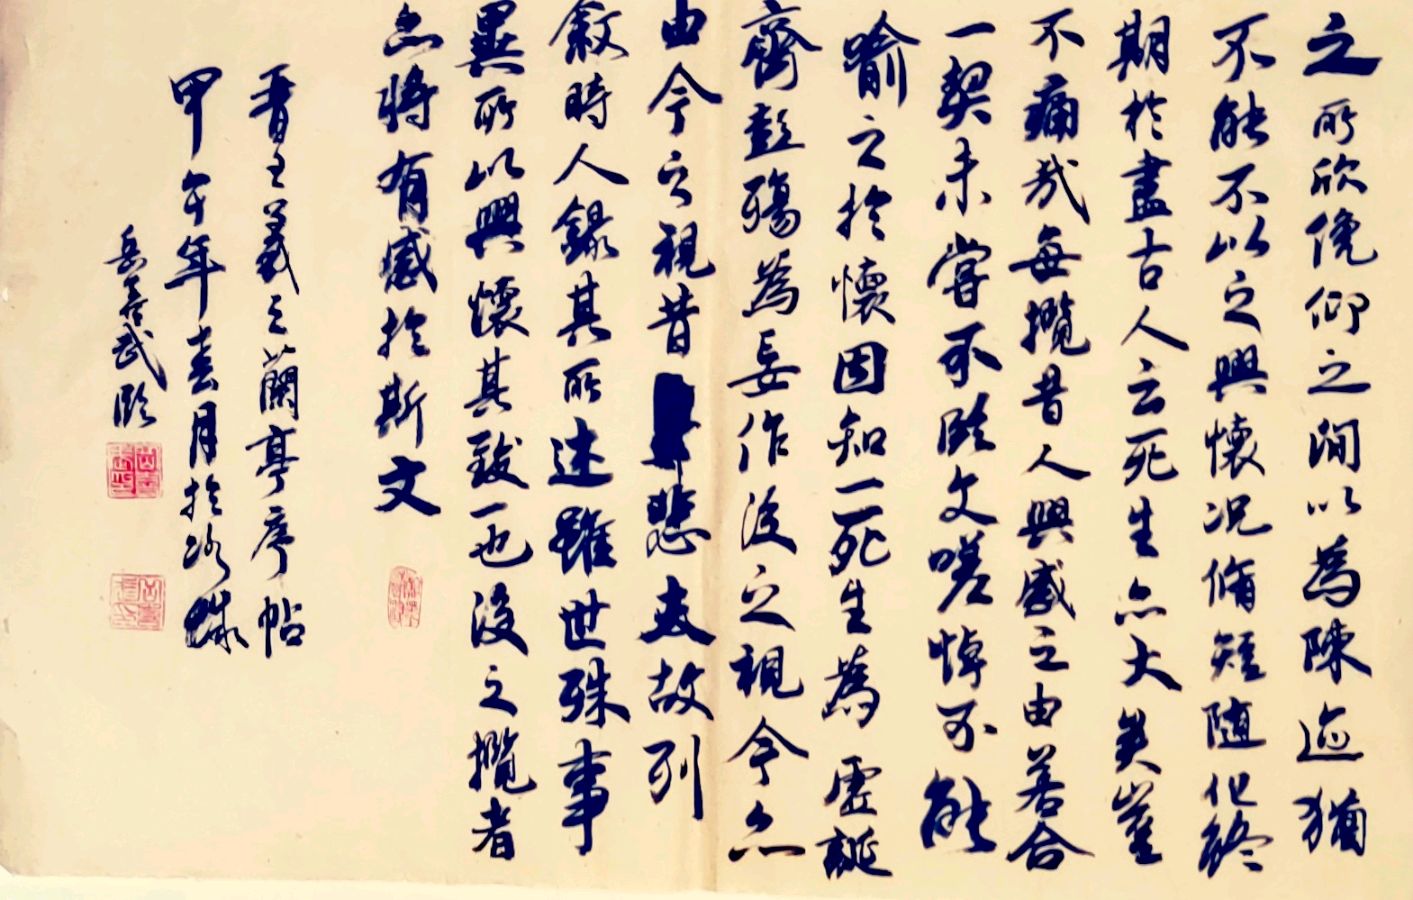 之所欣俛仰之間以為陳迹猶
不能不以之興懷況脩短隨化終
期於盡古人云死生亦大矣豈
不痛哉每攬昔人興感之由若合
一契未嘗不臨文嗟悼不能
喻之於懷固知一死生為虛誕
齊彭殤為妄作後之視今亦
由今之視昔悲夫故列
敘時人錄其所述雖世殊事
異所以興懷其致一也後之攬者
亦將有感於斯文
晉王羲之蘭亭序帖
甲午年春月於
岳 武臨